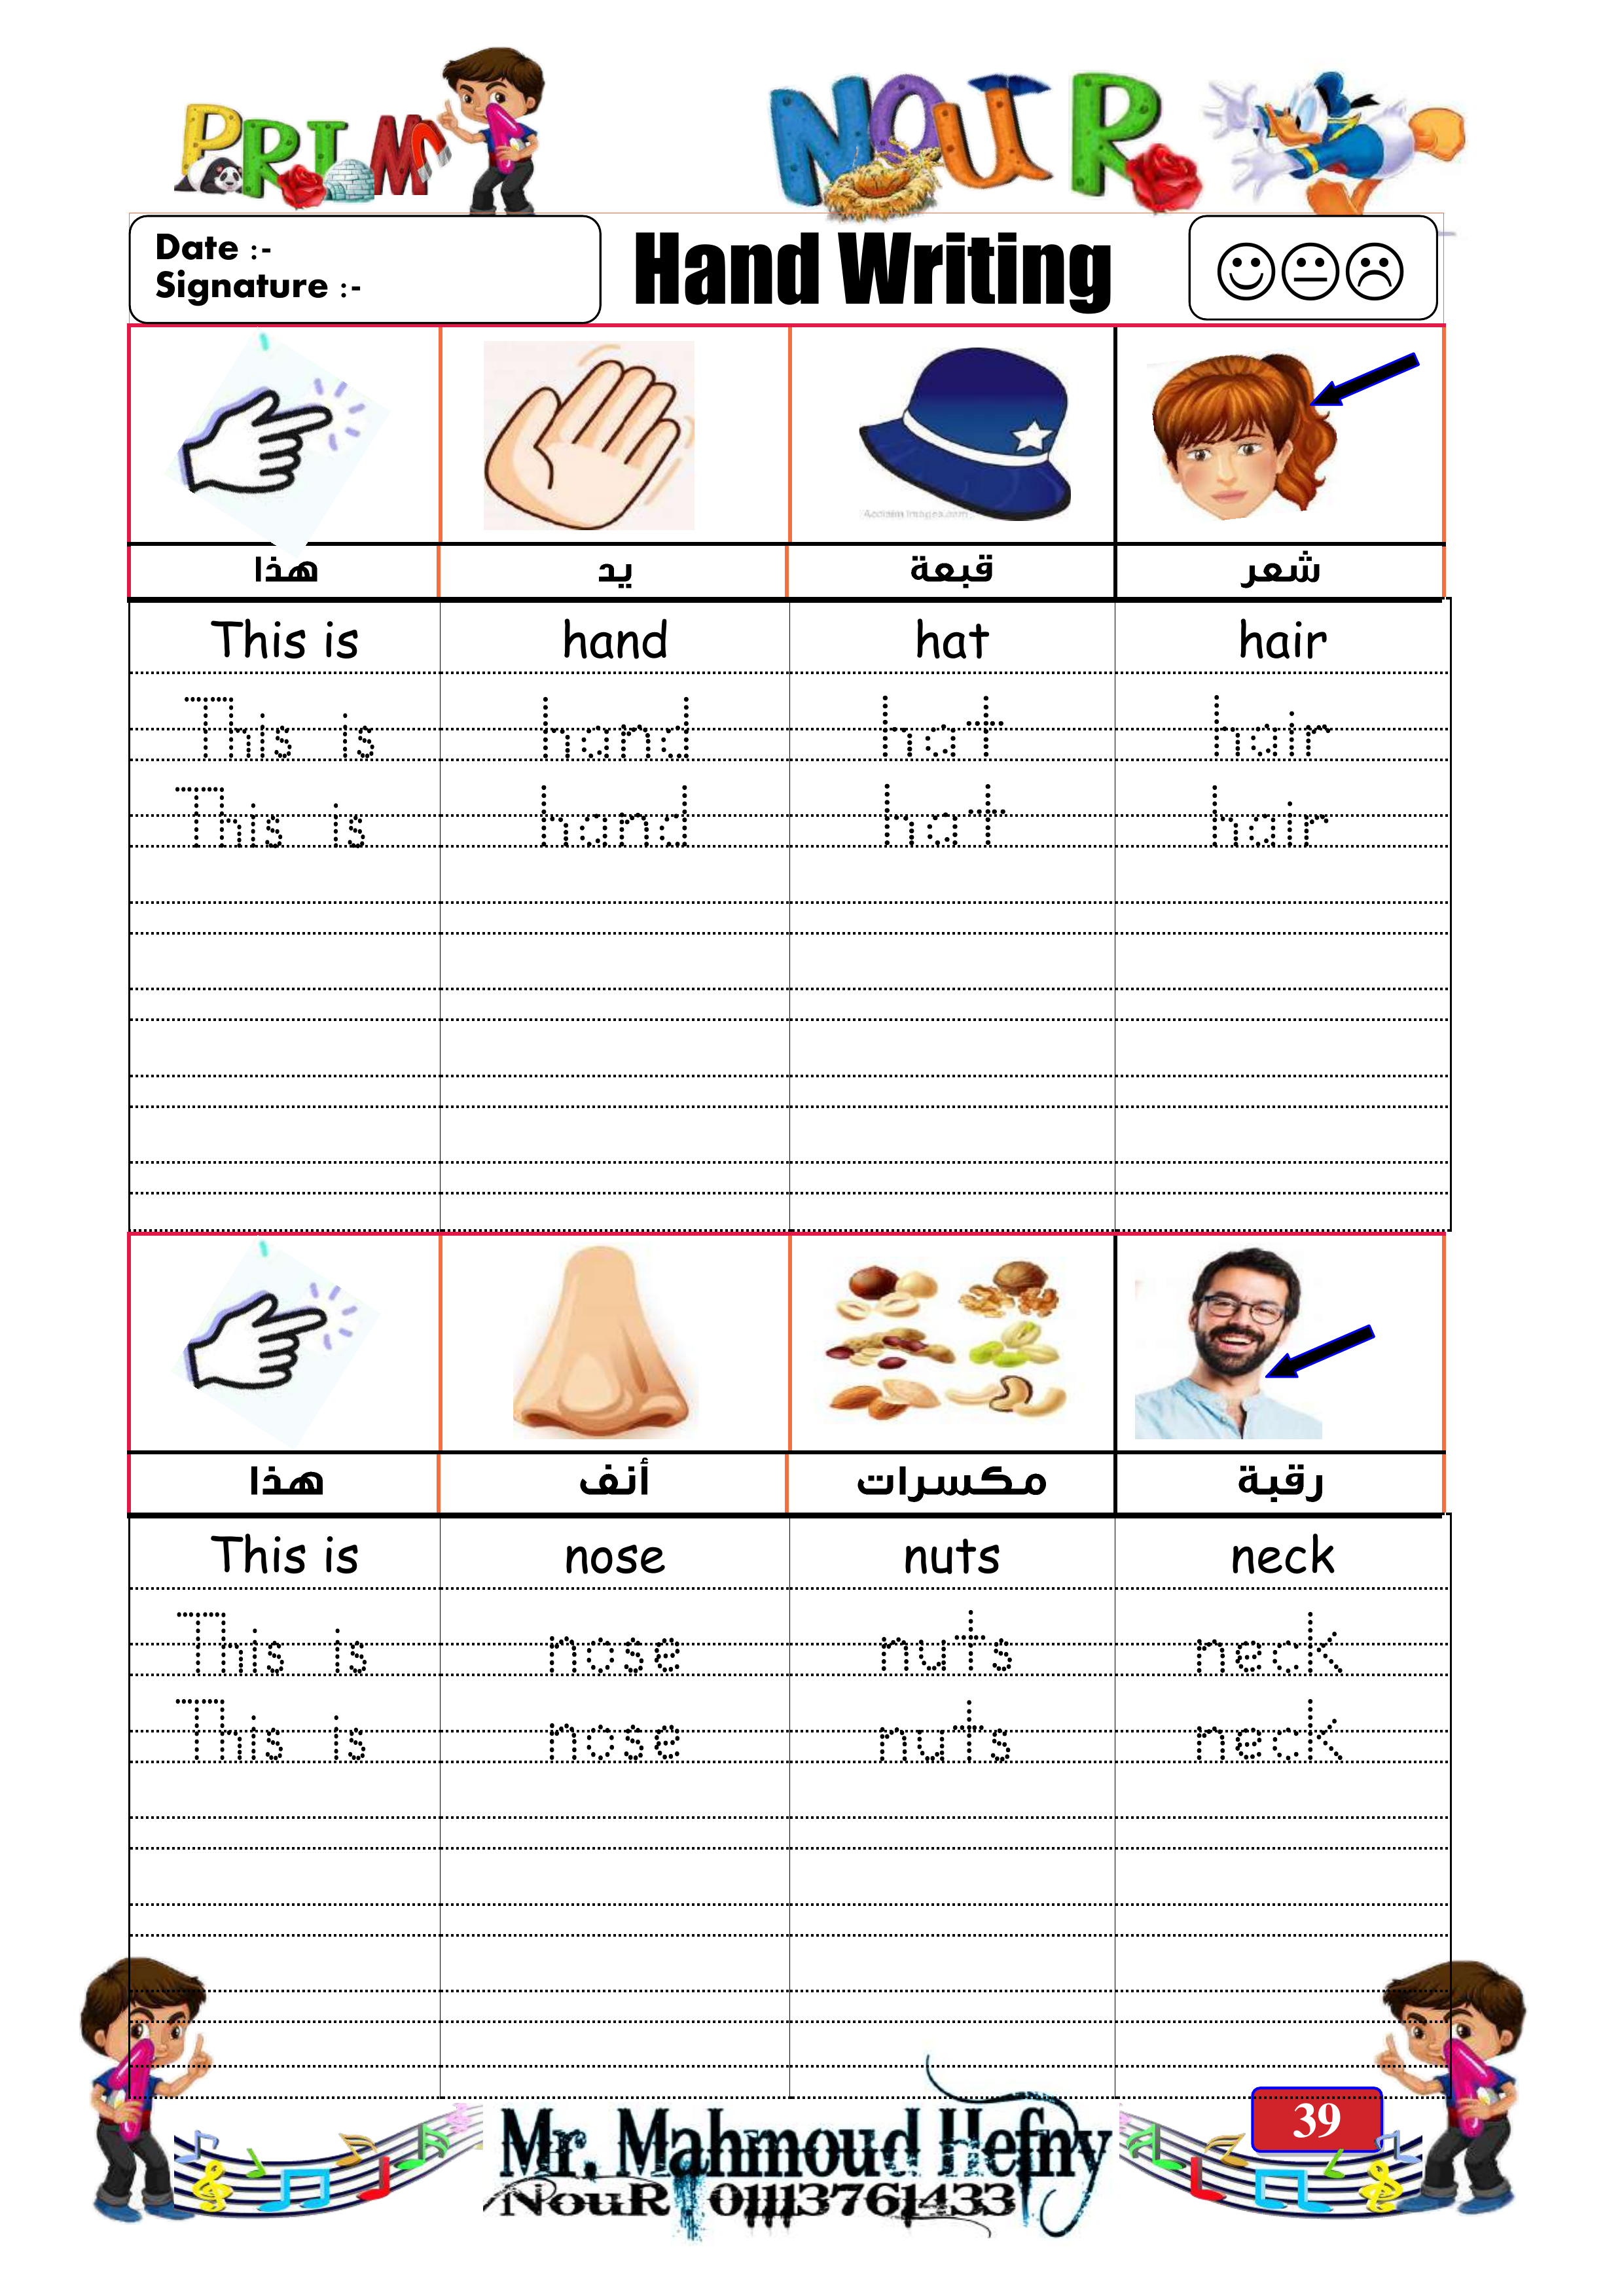 PRIM 1
NOUR
Date :-
Signature :-
Hand Writing
Acclaim Images.com
هذا يد قبعة شعر
This is hand hat hair
This is hand hat hair
This is hand hat hair
هذا أنف مكسرات رقبة
This is nose nuts neck
This is nose nuts neck
This is nose nuts neck
39
Mr. Mahmoud Hefny
NouR 01113761433